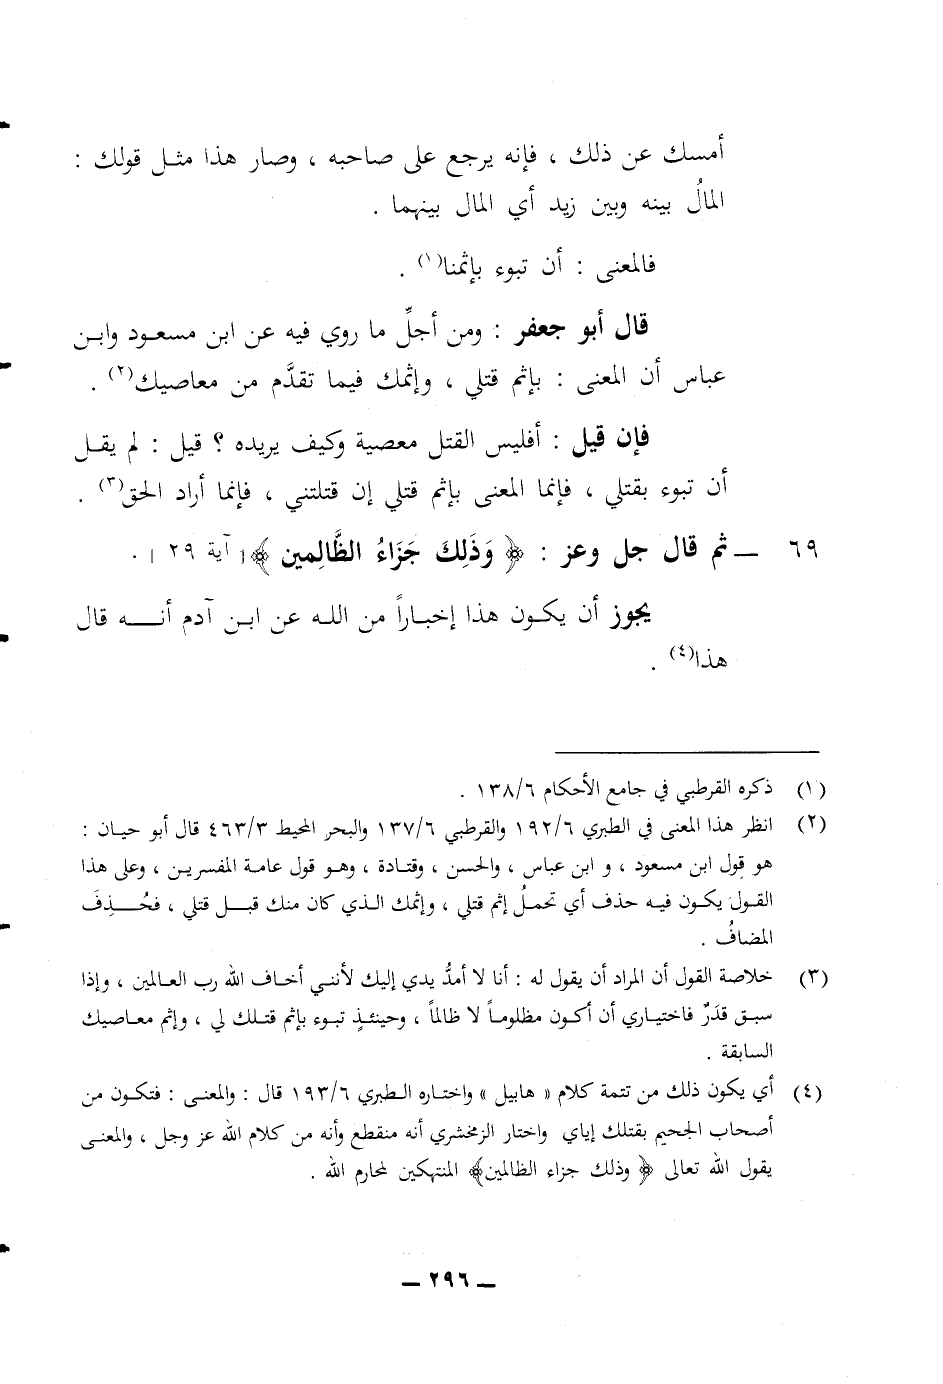 أمسك عن ذلك ، فإنه يرجع على صاحبه ، وصار هذا مثل قولك :
المالُ بينه وبين زيد أي المال بينهما .
فالمعنى : أن تبوء بإثمنا(١) .
قال أبو جعفر : ومن أجلِّ ما روي فيه عن ابن مسعود وابن
عباس أن المعنى : بإثم قتلي ، وإثمك فيما تقدَّم من معاصيك(٢) .
فإن قيل : أفليس القتل معصية وكيف يريده ؟ قيل : لم يقل
أن تبوء بقتلي ، فإنما المعنى بإثم قتلي إن قتلتني ، فإنما أراد الحق(٣) .
٦٩ ــ ثم قال جل وعز : ﴿ وَذَلِكَ جَزَاءُ الظَّالِمين ﴾[ آية ٢٩ ] .
يجوز أن يكون هذا إخباراً من الله عن ابن آدم أنه قال
هذا(٤) .
(١) ذكره القرطبي في جامع الأحكام ١٣٨/٦ .
(٢) انظر هذا المعنى في الطبري ١٩٢/٦ والقرطبي ١٣٧/٦ والبحر المحيط ٤٦٣/٣ قال أبو حيان :
هو قول ابن مسعود ، و ابن عباس ، والحسن ، وقتادة ، وهو قول عامة المفسرين ، وعلى هذا
القول يكون فيه حذف أي تحملُ إثم قتلي ، وإثمك الذي كان منك قبل قتلي ، فحُذِفَ
المضافُ .
(٣) خلاصة القول أن المراد أن يقول له : أنا لا أمدُّ يدي إليك لأنني أخاف الله رب العالمين ، وإذا
سبق قدَرٌ فاختياري أن أكون مظلوماً لا ظالماً ، وحينئذٍ تبوء بإثم قتلك لي ، وإثم معاصيك
السابقة .
(٤) أي يكون ذلك من تتمة كلام « هابيل » واختاره الطبري ١٩٣/٦ قال : والمعنى : فتكون من
أصحاب الجحيم بقتلك إياي واختار الزمخشري أنه منقطع وأنه من كلام الله عز وجل ، والمعنى
يقول الله تعالى ﴿ وذلك جزاء الظالمين﴾ المنتهكين لمحارم الله .
ــ ٢٩٦ ــ